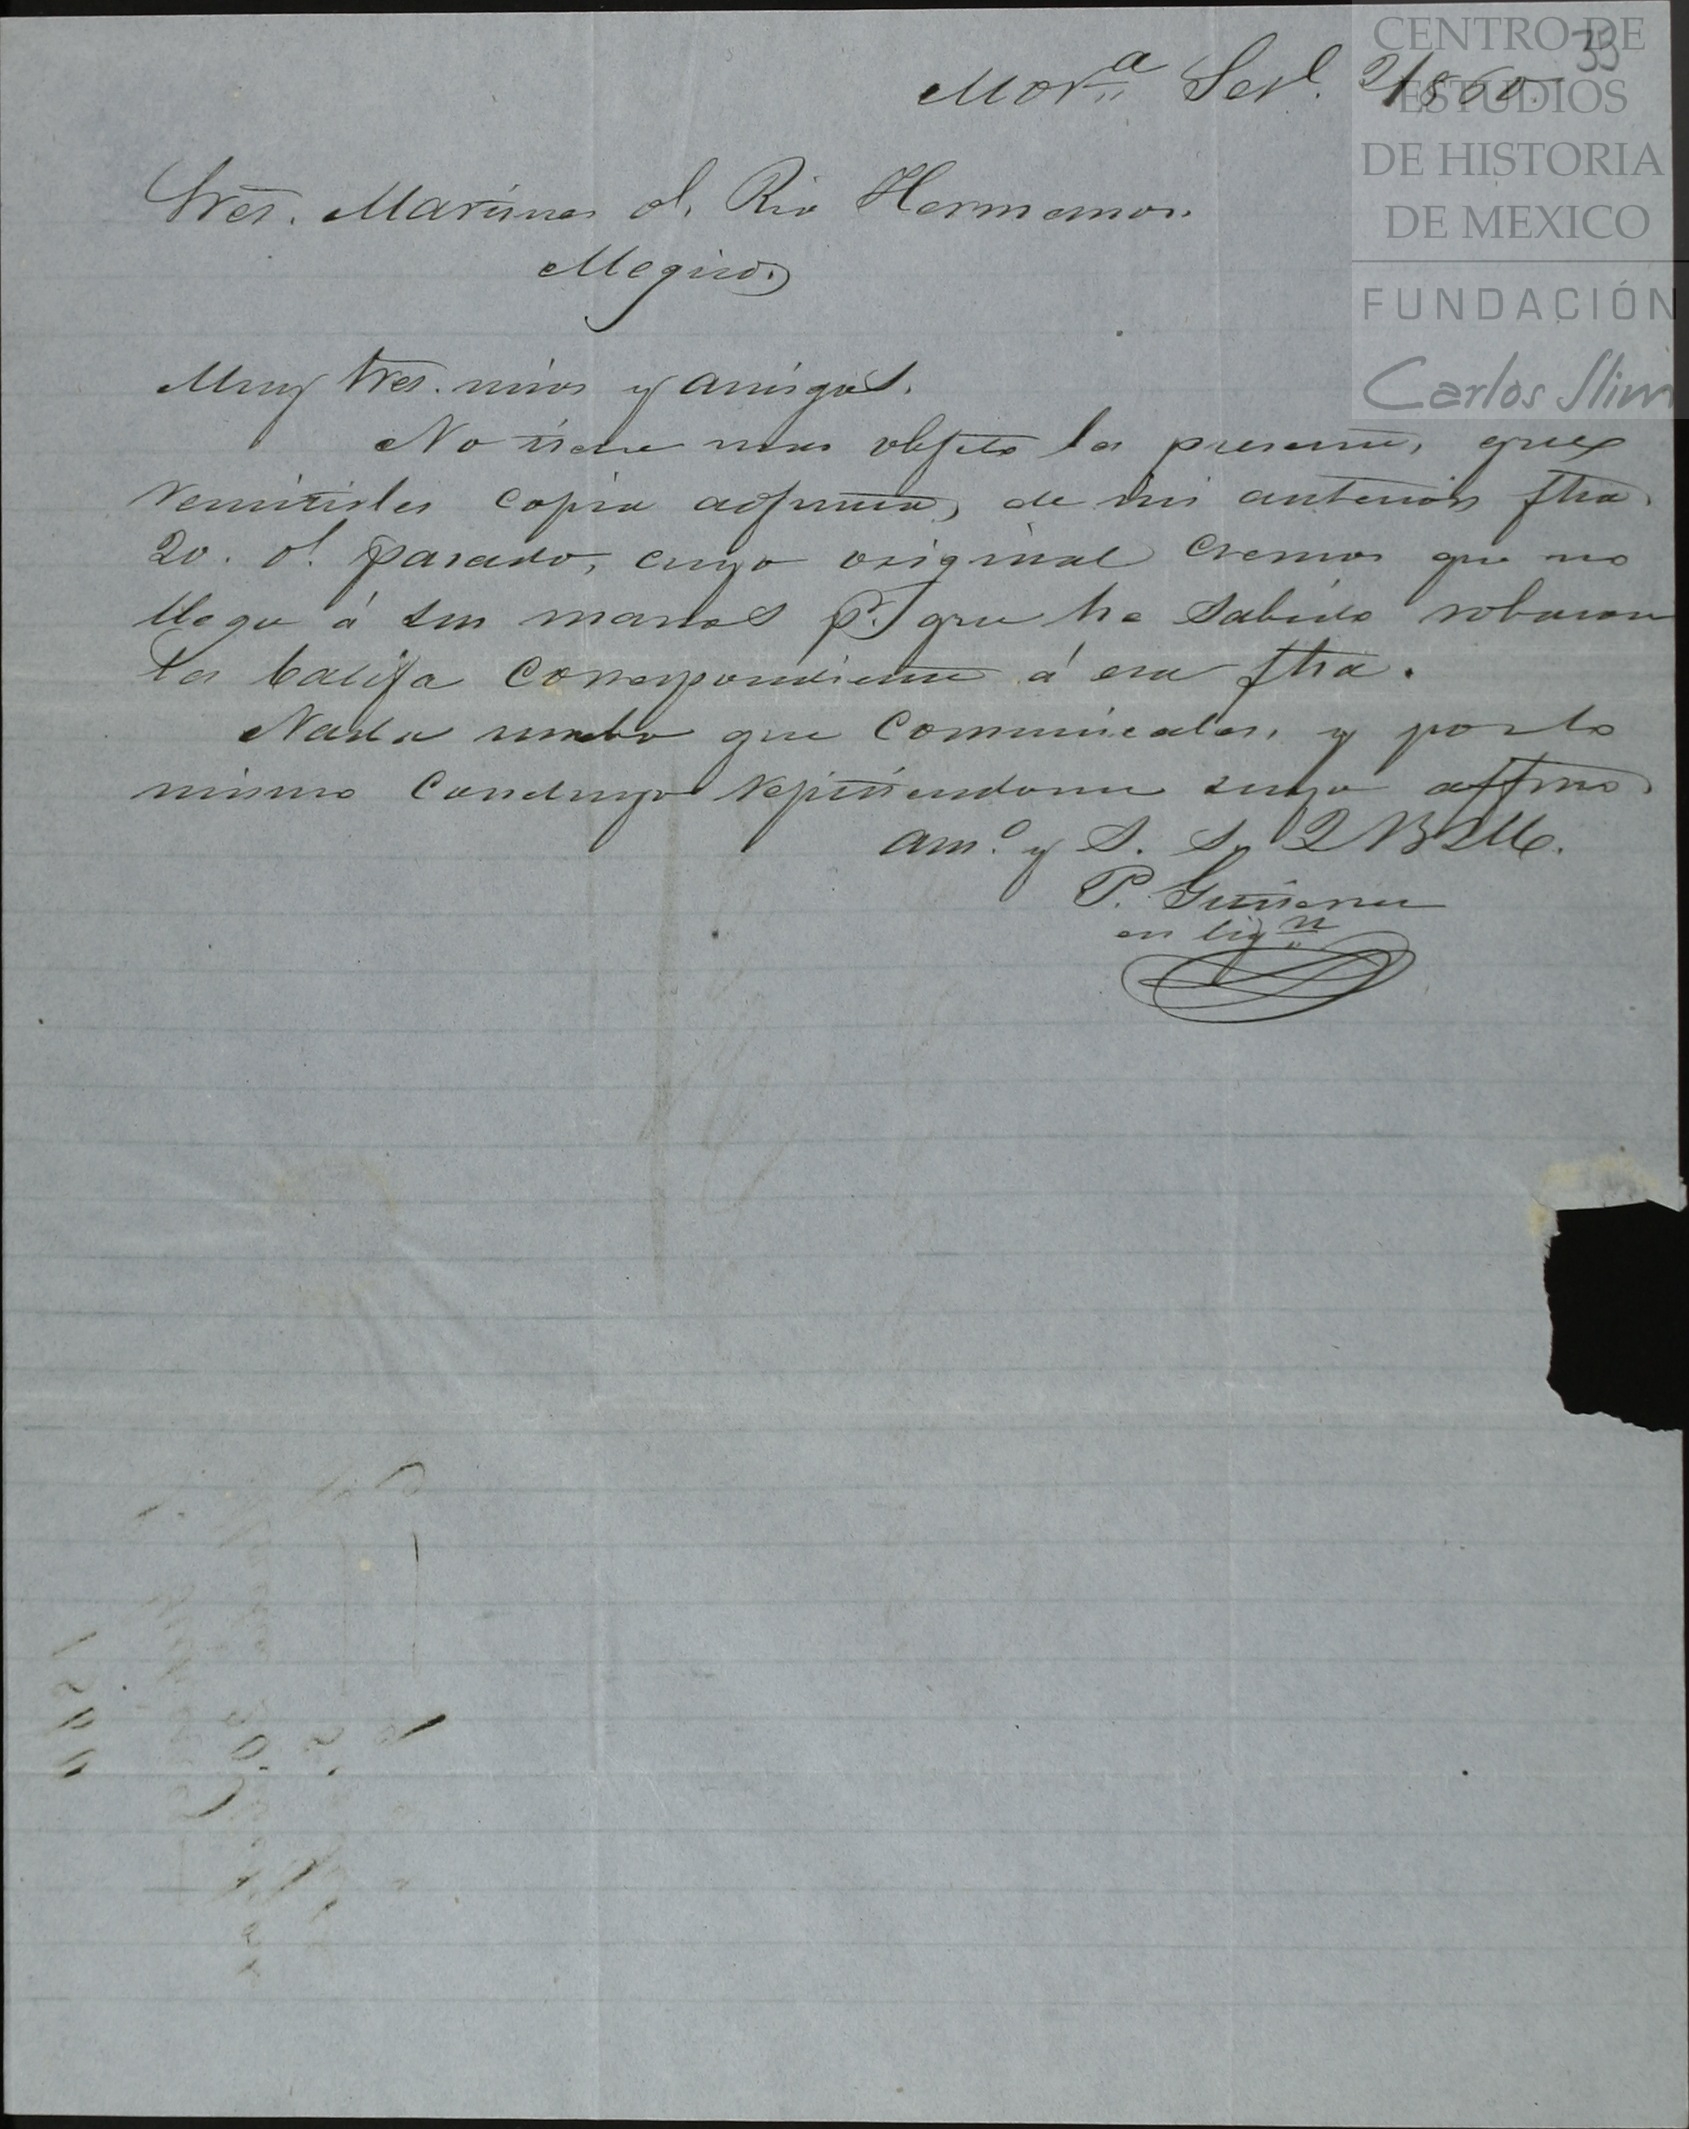 33
Mor.ª Set.e 2/1860.
Sres. Martines d. Rio Hermanos.
Megico.
Muy Sres. mios y amigos.
No tiene mas objeto la presente, que
remitirles copia adjunta, de mi anterior fha.
20. d. pasado, cuyo original creemos que no
llegue á sus manos p.r que he sabido robaron
la balija correspondiente á esa fha.
Nada nuebo que comunicarles, y por lo
mismo concluyo repitiendome suyo affmo.
am.º y S. S. Q B S M.
P. Gutierrez
en liq.n
CENTRO DE
ESTUDIOS
DE HISTORIA
DE MEXICO
FUNDACIÓN
Carlos Slim